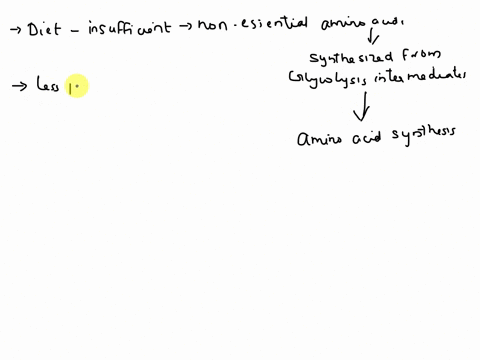 → Diet - insufficient → non-essential amino acids.
Synthesized from
Glycolysis intermediates
Amino acid synthesis
→ Less